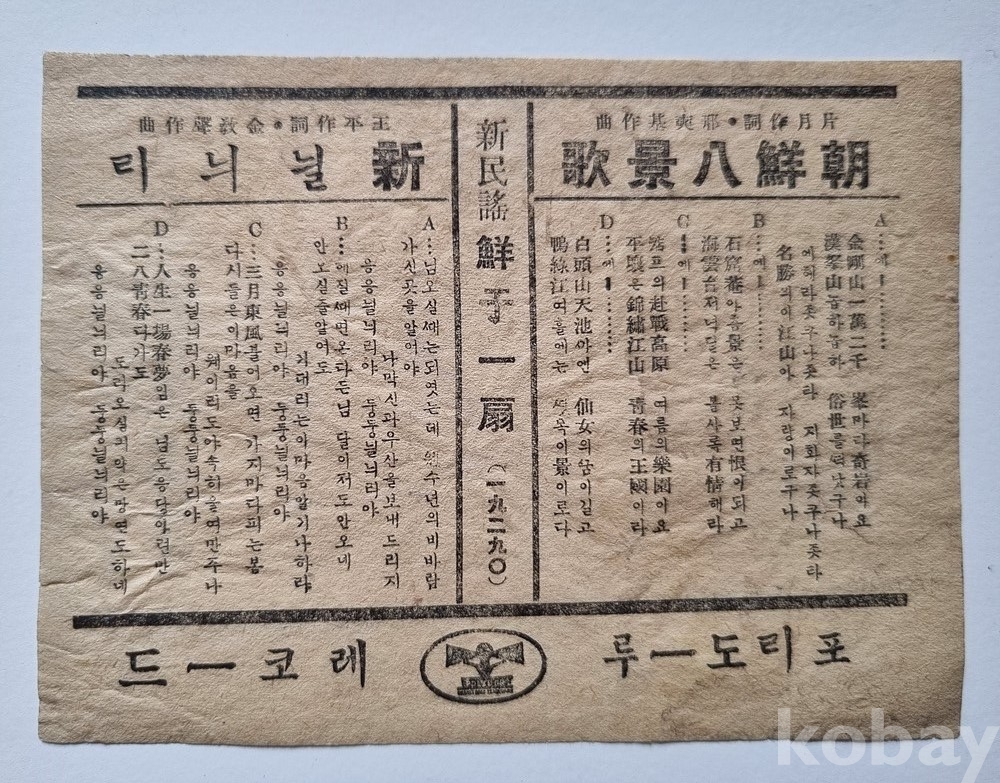 片月作詞・邢奭基作曲
朝鮮八景歌
A……에ー………
金剛山一萬二千 峯마다奇岩이요
漢拏山높하높하 俗世를떠낫구나
에헤라좃구나좃타 지화자좃구나좃타
名勝의이江山아 자랑이로구나
B……에ー………
石窟菴아츰景은 못보면恨이되고
海雲台저녁달은 볼사록有情해라
C……에ー………
캠프의赴戰高原 여름의樂園이요
平壤은錦繡江山 靑春의王國이라
D……에ー………
白頭山天池아엔 仙女의꿈이깁고
鴨綠江여흘에는 뗏목이景이로다
新民謠 鮮于一扇 (一九二九〇)
王平作詞・金敎聲作曲
新닐늬리
A…님오실때는되엿는데 웬수년의비바람
가신곳을알어야
나막신과우산을보내드리지
응응늴늬리야 둥둥늴늬리야
B…해질때면온다든님 달이저도안오네
안오실줄알어도
기대리는이마음알기나하랴
응응늴늬리야 둥둥늴늬리야
C…三月東風불어오면 가지마다피는봄
다시들은이마음을
웨이리도야속히울여만주나
응응늴늬리야 둥둥늴늬리야
D…人生一場春夢임은 님도응당아련만
二八靑春다가도
도라오실의약은망연도하네
응응늴늬리야 둥둥늴늬리야
포리도ー루
POLYDOR
레코ー드
kobay